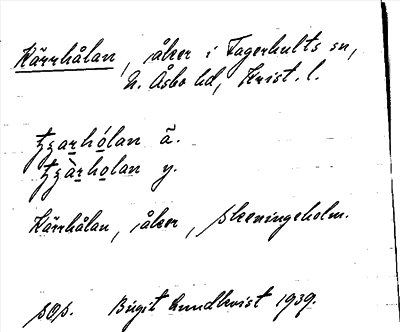 Kärrhålan, åker i Fagerhults sn,
N. Åsbo hd, Krist. l.
hólan ä.
holan y.
Kärrhålan, åker, Skeningeholm.
Birgit Lundkvist 1939.